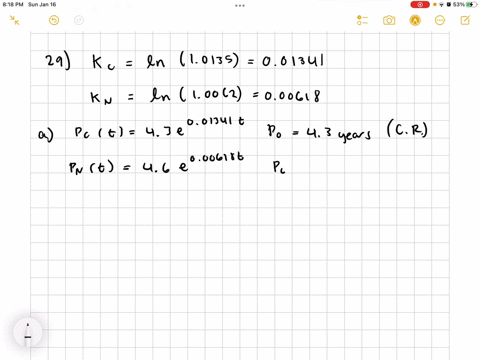 8:18 PM Sun Jan 16
53%
29) K_C = ln (1.0135) = 0.01341
K_N = ln (1.0062) = 0.00618
a) P_C (t) = 4.3 e^0.01341 t P_0 = 4.3 years (C.R.)
P_N (t) = 4.6 e^0.00618t P_C